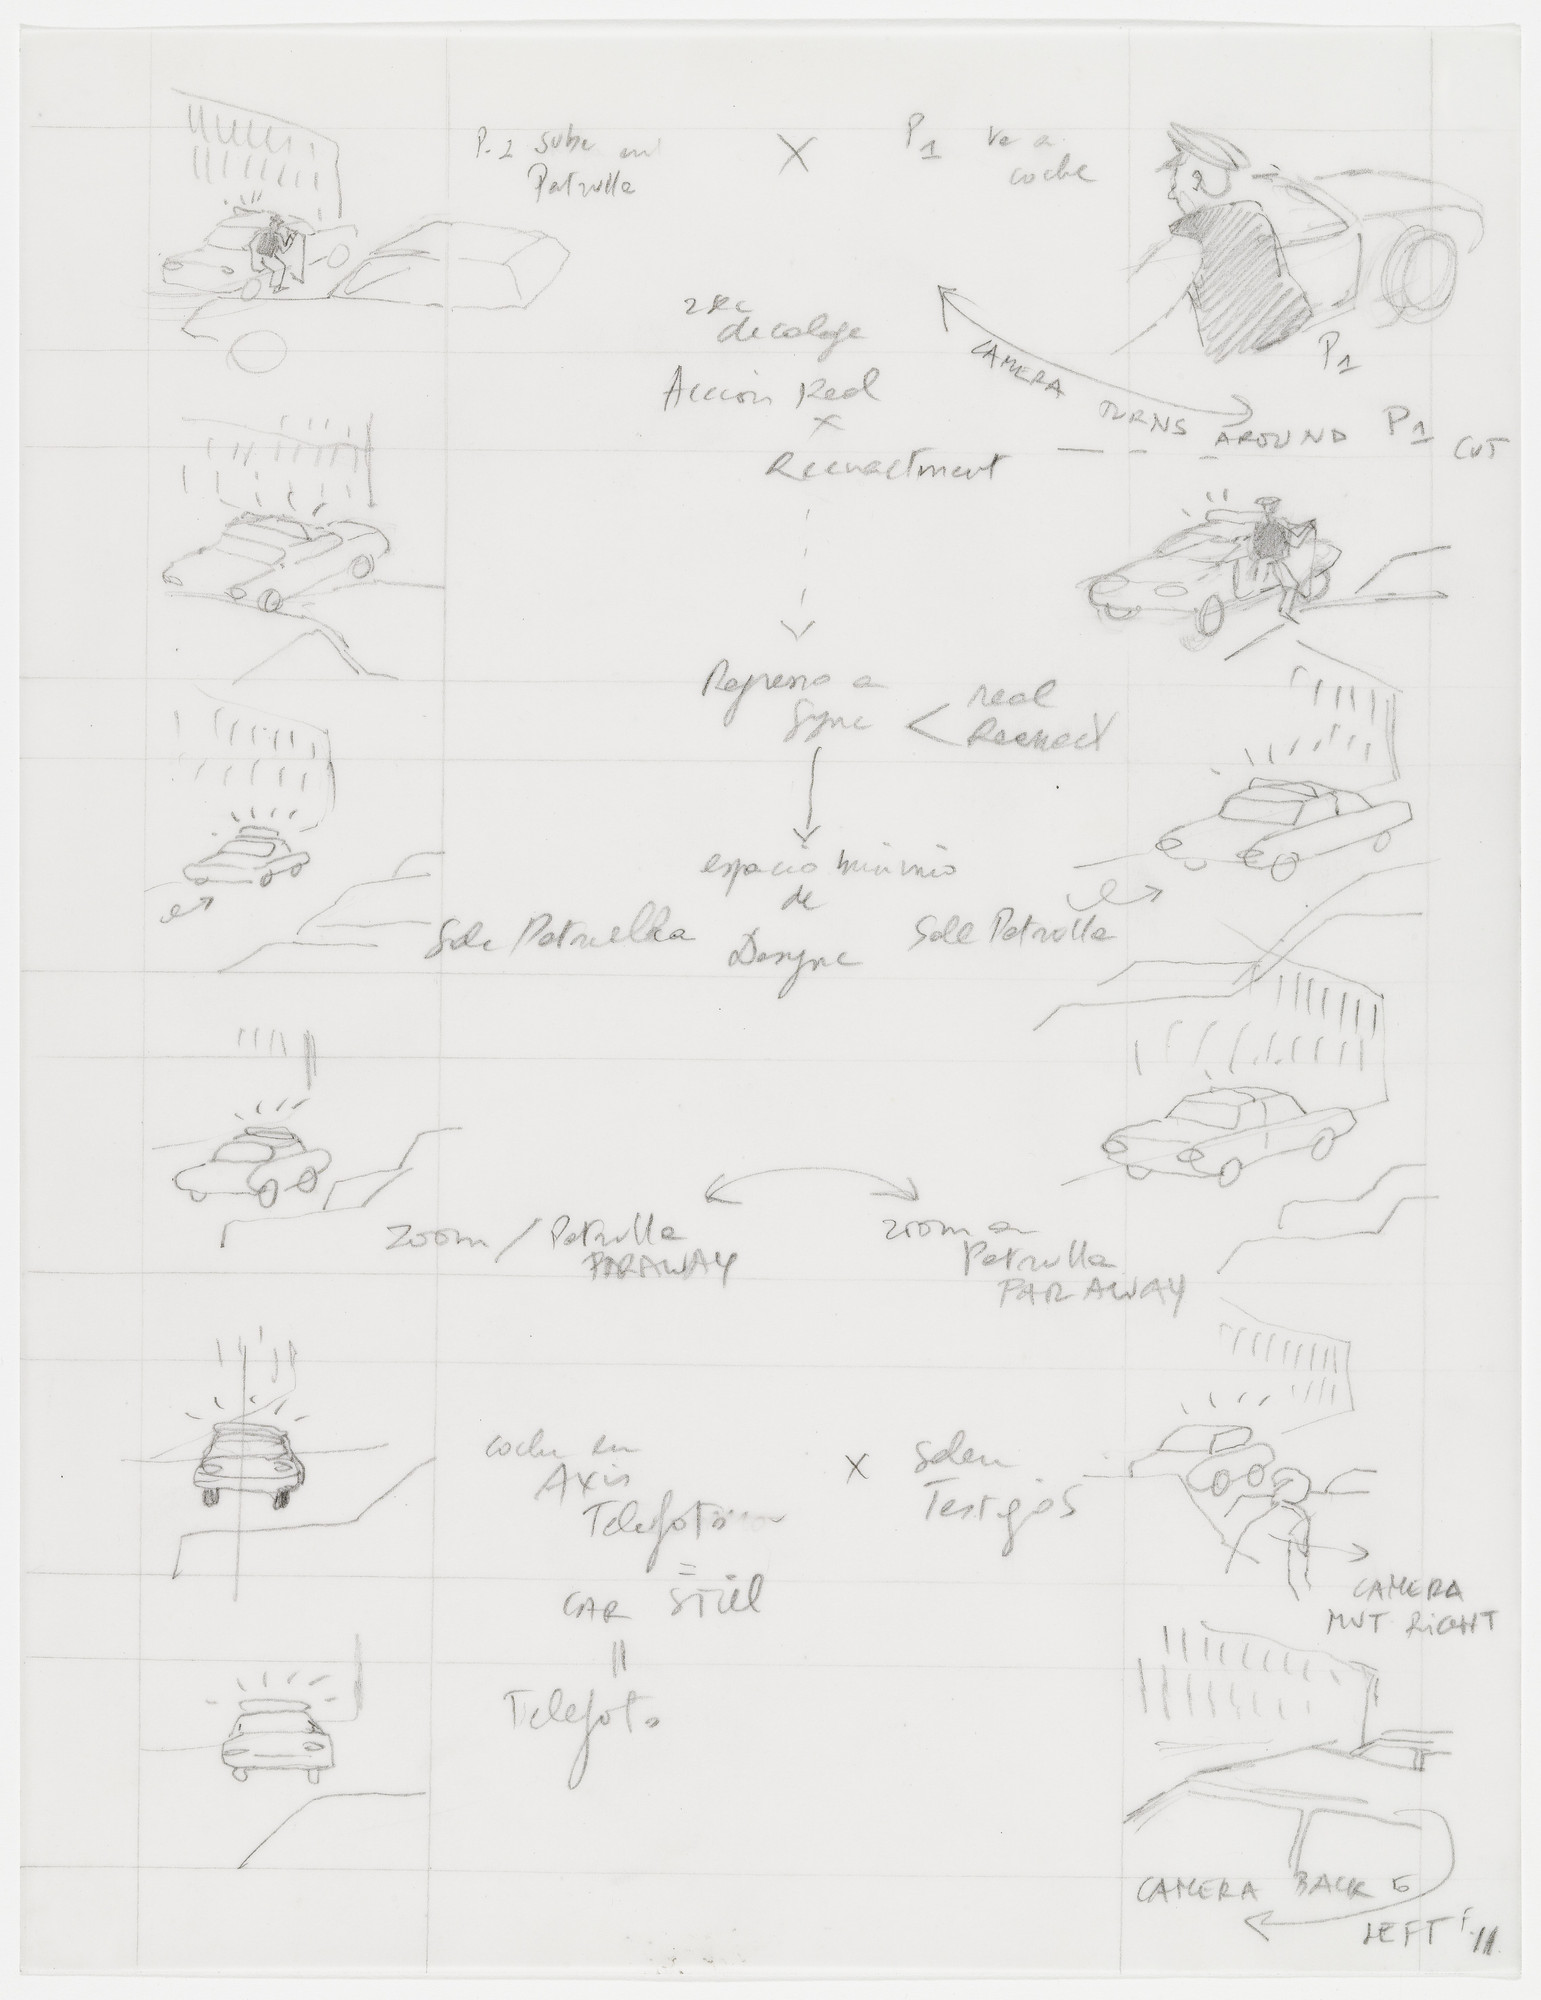 P.2 sube en
Patrulla
X
P1 ve a
coche
decalage
Acción Real
x
Reenactment
P1
CAMERA TURNS AROUND P1 CUT
Regreso a
Sync < real
Reenact
espacio minimo
de
Desync
Sale Patrullla
Sale Patrulla
Zoom / Patrulla
FARAWAY
zoom a
Patrulla
FAR AWAY
coche en
Axis
Telefoto
=
CAR Still
||
Telefoto
x
Salen
Testigos
CAMERA
MVT RIGHT
CAMERA BACK
LEFT